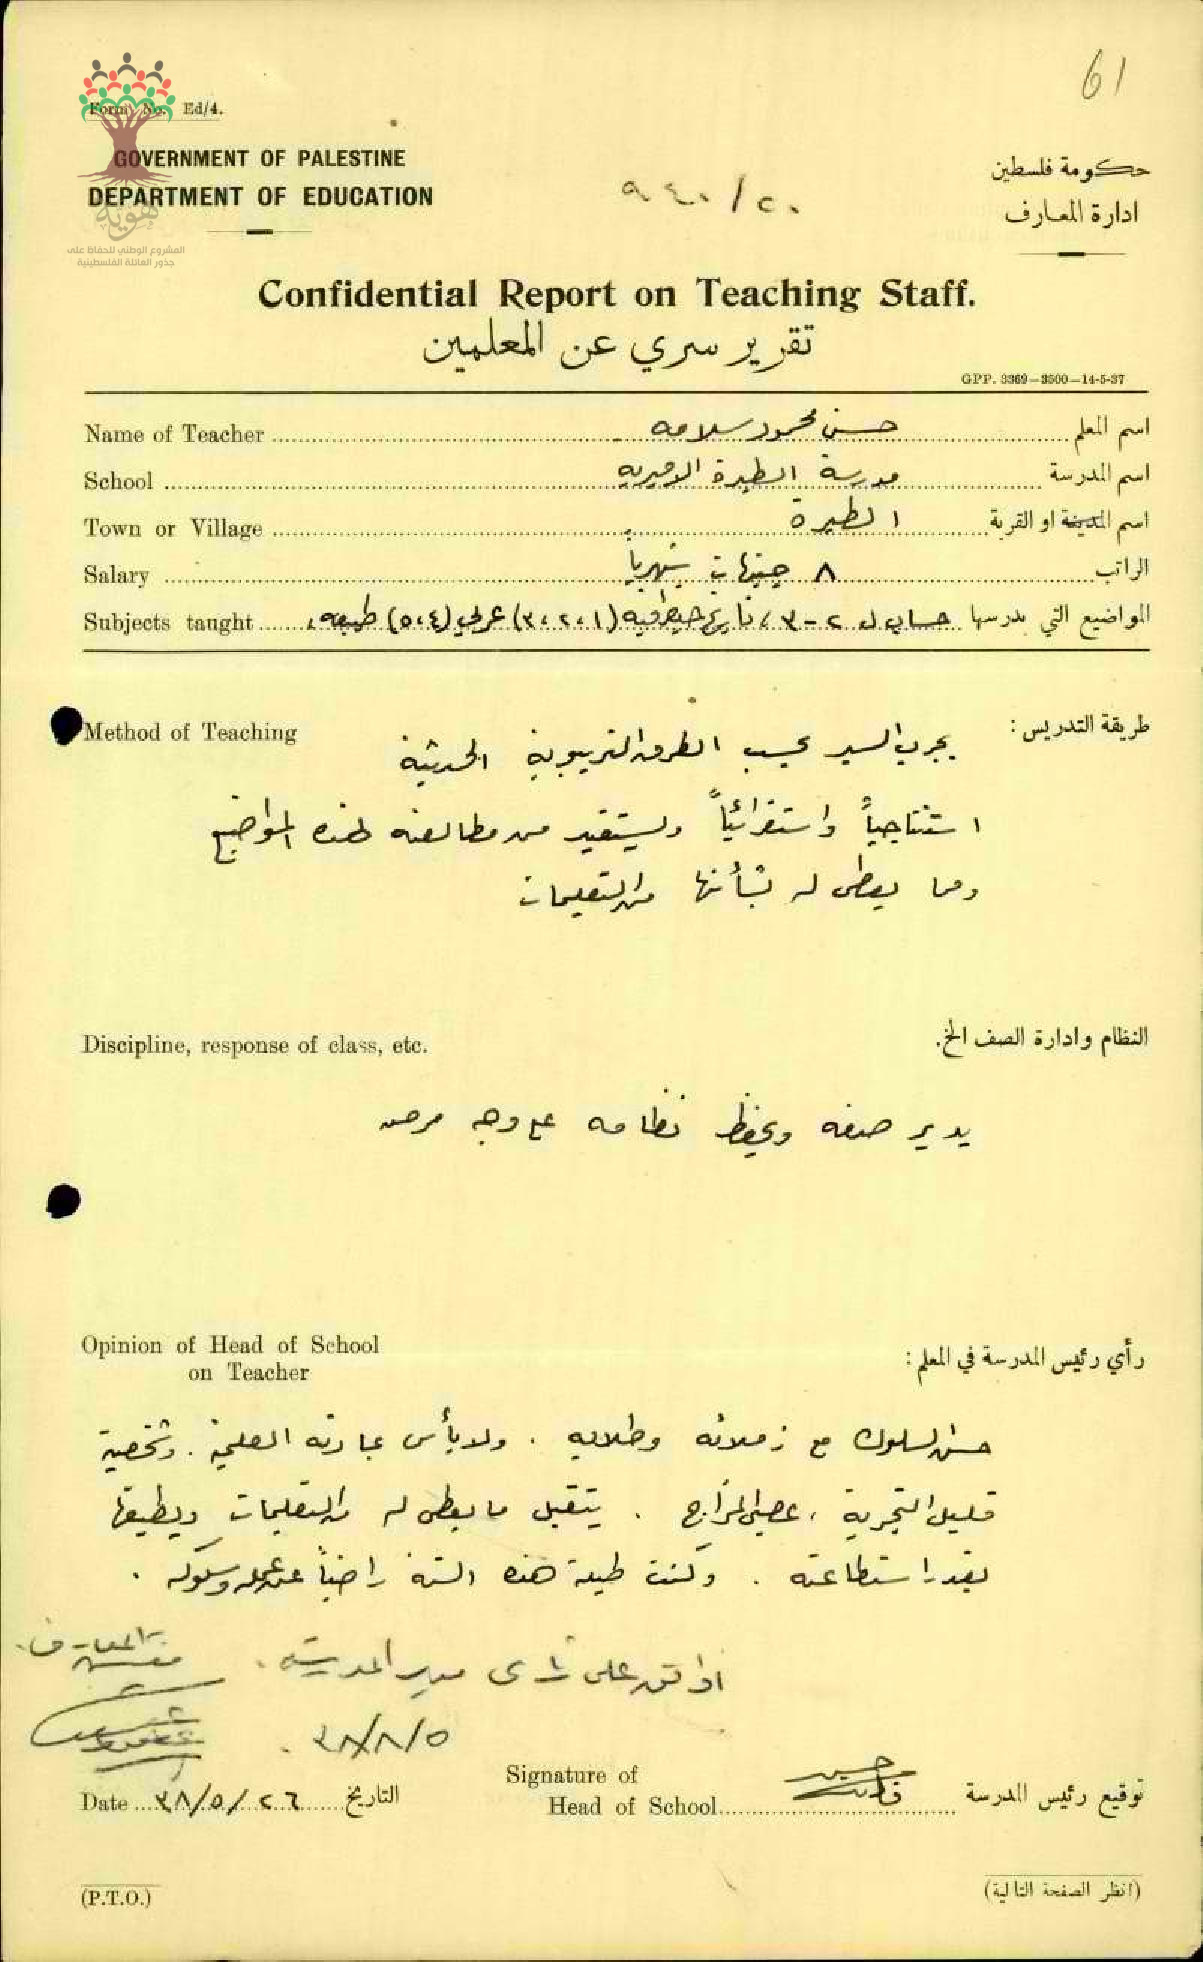 61
Form No. Ed/4.
GOVERNMENT OF PALESTINE
DEPARTMENT OF EDUCATION
حكومة فلسطين
ادارة المعارف
٩٤٠/٢٠
هوية
المشروع الوطني للحفاظ على
جذور العائلة الفلسطينية
Confidential Report on Teaching Staff.
تقرير سري عن المعلمين
GPP. 3369—3500—14-5-37
Name of Teacher حسن محمود سلامه اسم المعلم
School مدرسة الطيرة الاميريه اسم المدرسة
Town or Village الطيرة اسم المدينة او القرية
Salary ٨ جنيهات شهرياً الراتب
Subjects taught المواضيع التي يدرسها حساب ل ٢-٣، تاريخ جغرافيه (٣،٢،١) عربي (٥،٤) طبيعه،
Method of Teaching طريقة التدريس:
يجرب السير بحسب الطرق التربيوية الحديثة
استنتاجياً واستقرائياً ويستفيد من مطالعته لهذه المواضيع
ومما يعطى له بشأنها من التعليمات
Discipline, response of class, etc. النظام وادارة الصف الخ.
يدير صفه ويحفظ نظامه على وجه مرض
Opinion of Head of School
on Teacher
رأي رئيس المدرسة في المعلم:
حسن السلوك مع زملائه وطلابه. ولا بأس بمادته العلمية. وشخصية
قليل التجربة، عصبي المزاج. يتقبل ما يعطى له من التعليمات ويطبقها
بقدر استطاعته. وكنت طيلة هذه السنة راضياً عن عمله وسلوكه.
اوافق على رأى مدير المدرسة.
مفتش المعارف
٣٨/٨/٥
Signature of
Head of School توقيع رئيس المدرسة
Date ٣٨/٥/٢٦ التاريخ
(P.T.O.)
(انظر الصفحة التالية)